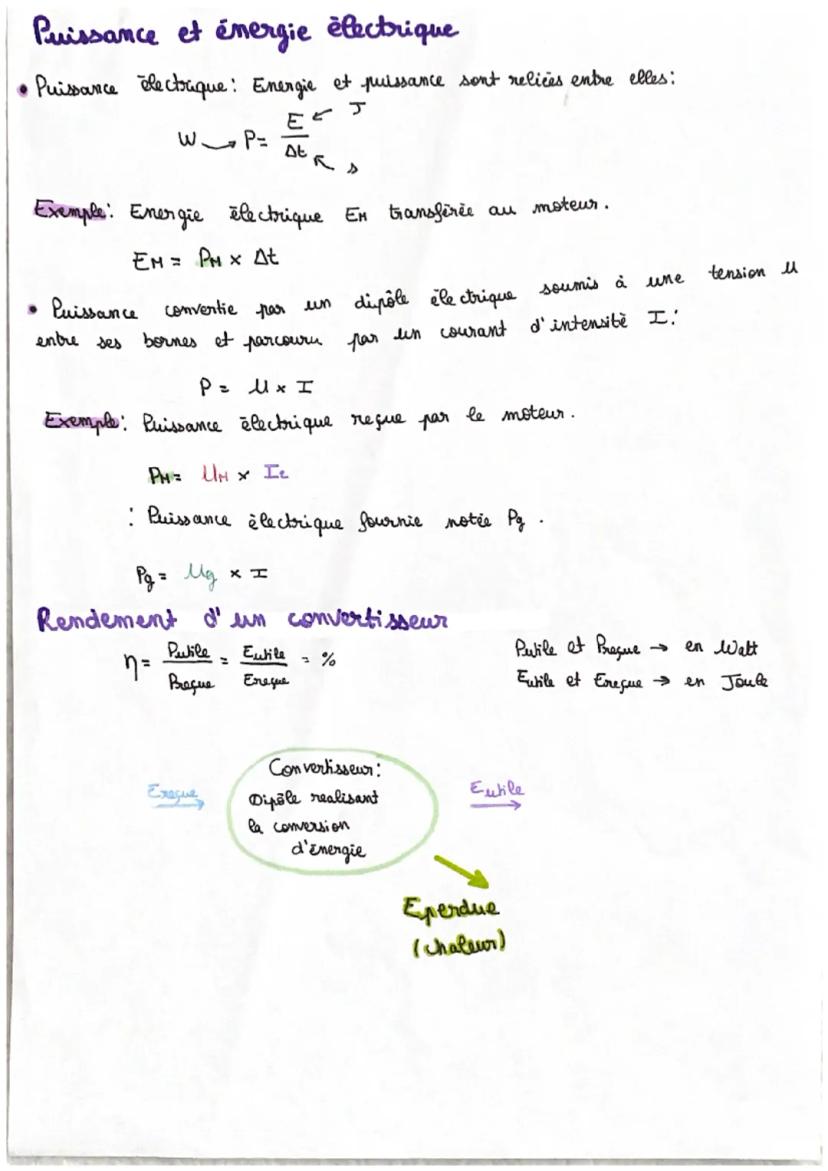 Puissance et énergie électrique
• Puissance électrique : Energie et puissance sont reliées entre elles :
W → P = E / Δt ← J ← s
Exemple : Energie électrique EM transférée au moteur.
EM = PM × Δt
• Puissance convertie par un dipôle électrique soumis à une tension U
entre ses bornes et parcouru par un courant d'intensité I :
P = U × I
Exemple : Puissance électrique reçue par le moteur.
PM = UM × Ie
: Puissance électrique fournie notée Pg.
Pg = Ug × I
Rendement d'un convertisseur
η = Putile / Preçue = Eutile / Ereçue = %
Putile et Preçue → en Watt
Eutile et Ereçue → en Joule
Convertisseur :
Ereçue
Dipôle realisant
Eutile
la conversion
d'énergie
Eperdue
(chaleur)